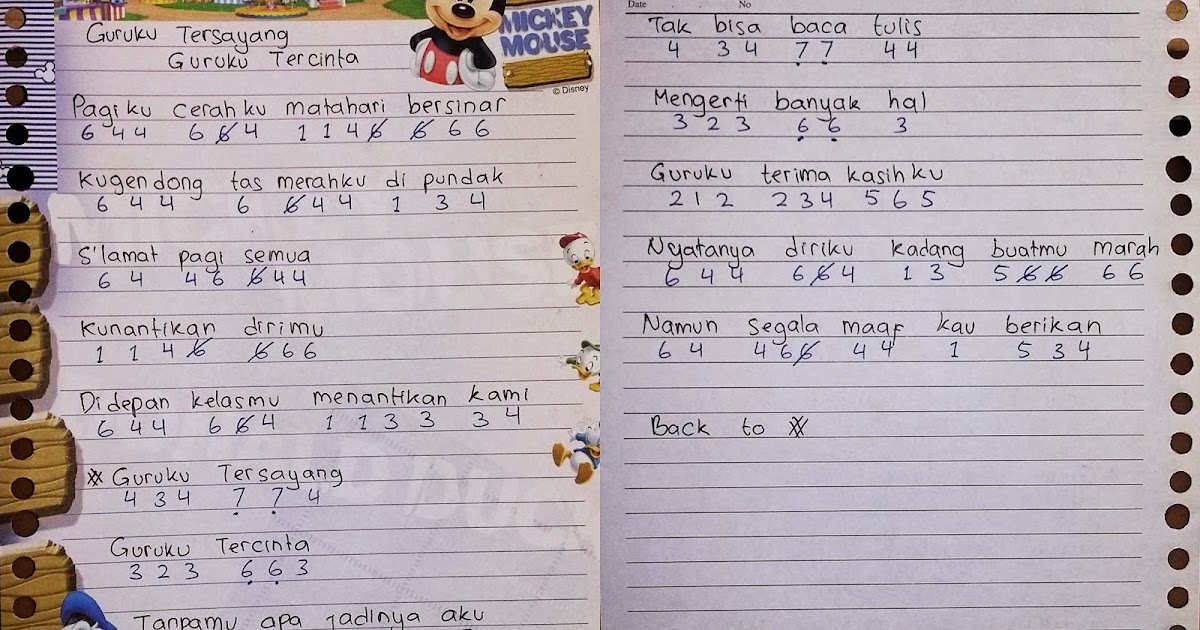 MICKEY
MOUSE
© Disney
Guruku Tersayang
Guruku Tercinta
Pagi ku cerah ku matahari bersinar
6 4 4 6 6̸ 4 1 1 4 6̸ 6̸ 6 6
Kugendong tas merahku di pundak
6 4 4 6 6̸ 4 4 1 3 4
S'lamat pagi semua
6 4 4 6 6̸ 4 4
Kunantikan dirimu
1 1 4 6̸ 6̸ 6 6
Didepan kelasmu menantikan kami
6 4 4 6 6̸ 4 1 1 3 3 3 4
※ Guruku Tersayang
4 3 4 7̣ 7̣ 4
Guruku Tercinta
3 2 3 6̣ 6̣ 3
Tanpamu apa jadinya aku
Date No
Tak bisa baca tulis
4 3 4 7̣ 7̣ 4 4
Mengerti banyak hal
3 2 3 6̣ 6̣ 3
Guruku terima kasih ku
2 1 2 2 3 4 5 6 5
Nyatanya diriku kadang buatmu marah
6 4 4 6 6̸ 4 1 3 5 6̸ 6̸ 6 6
Namun segala maaf kau berikan
6 4 4 6 6̸ 4 4 1 5 3 4
Back to ※